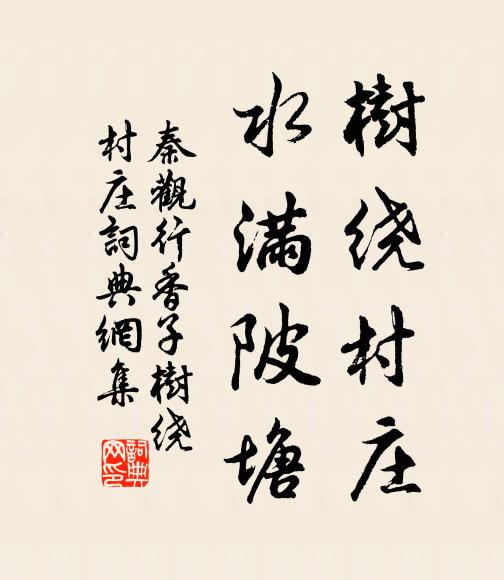 樹绕村庄
水满陂塘
秦觀行香子樹绕
村庄詞典網集
詞典
网印